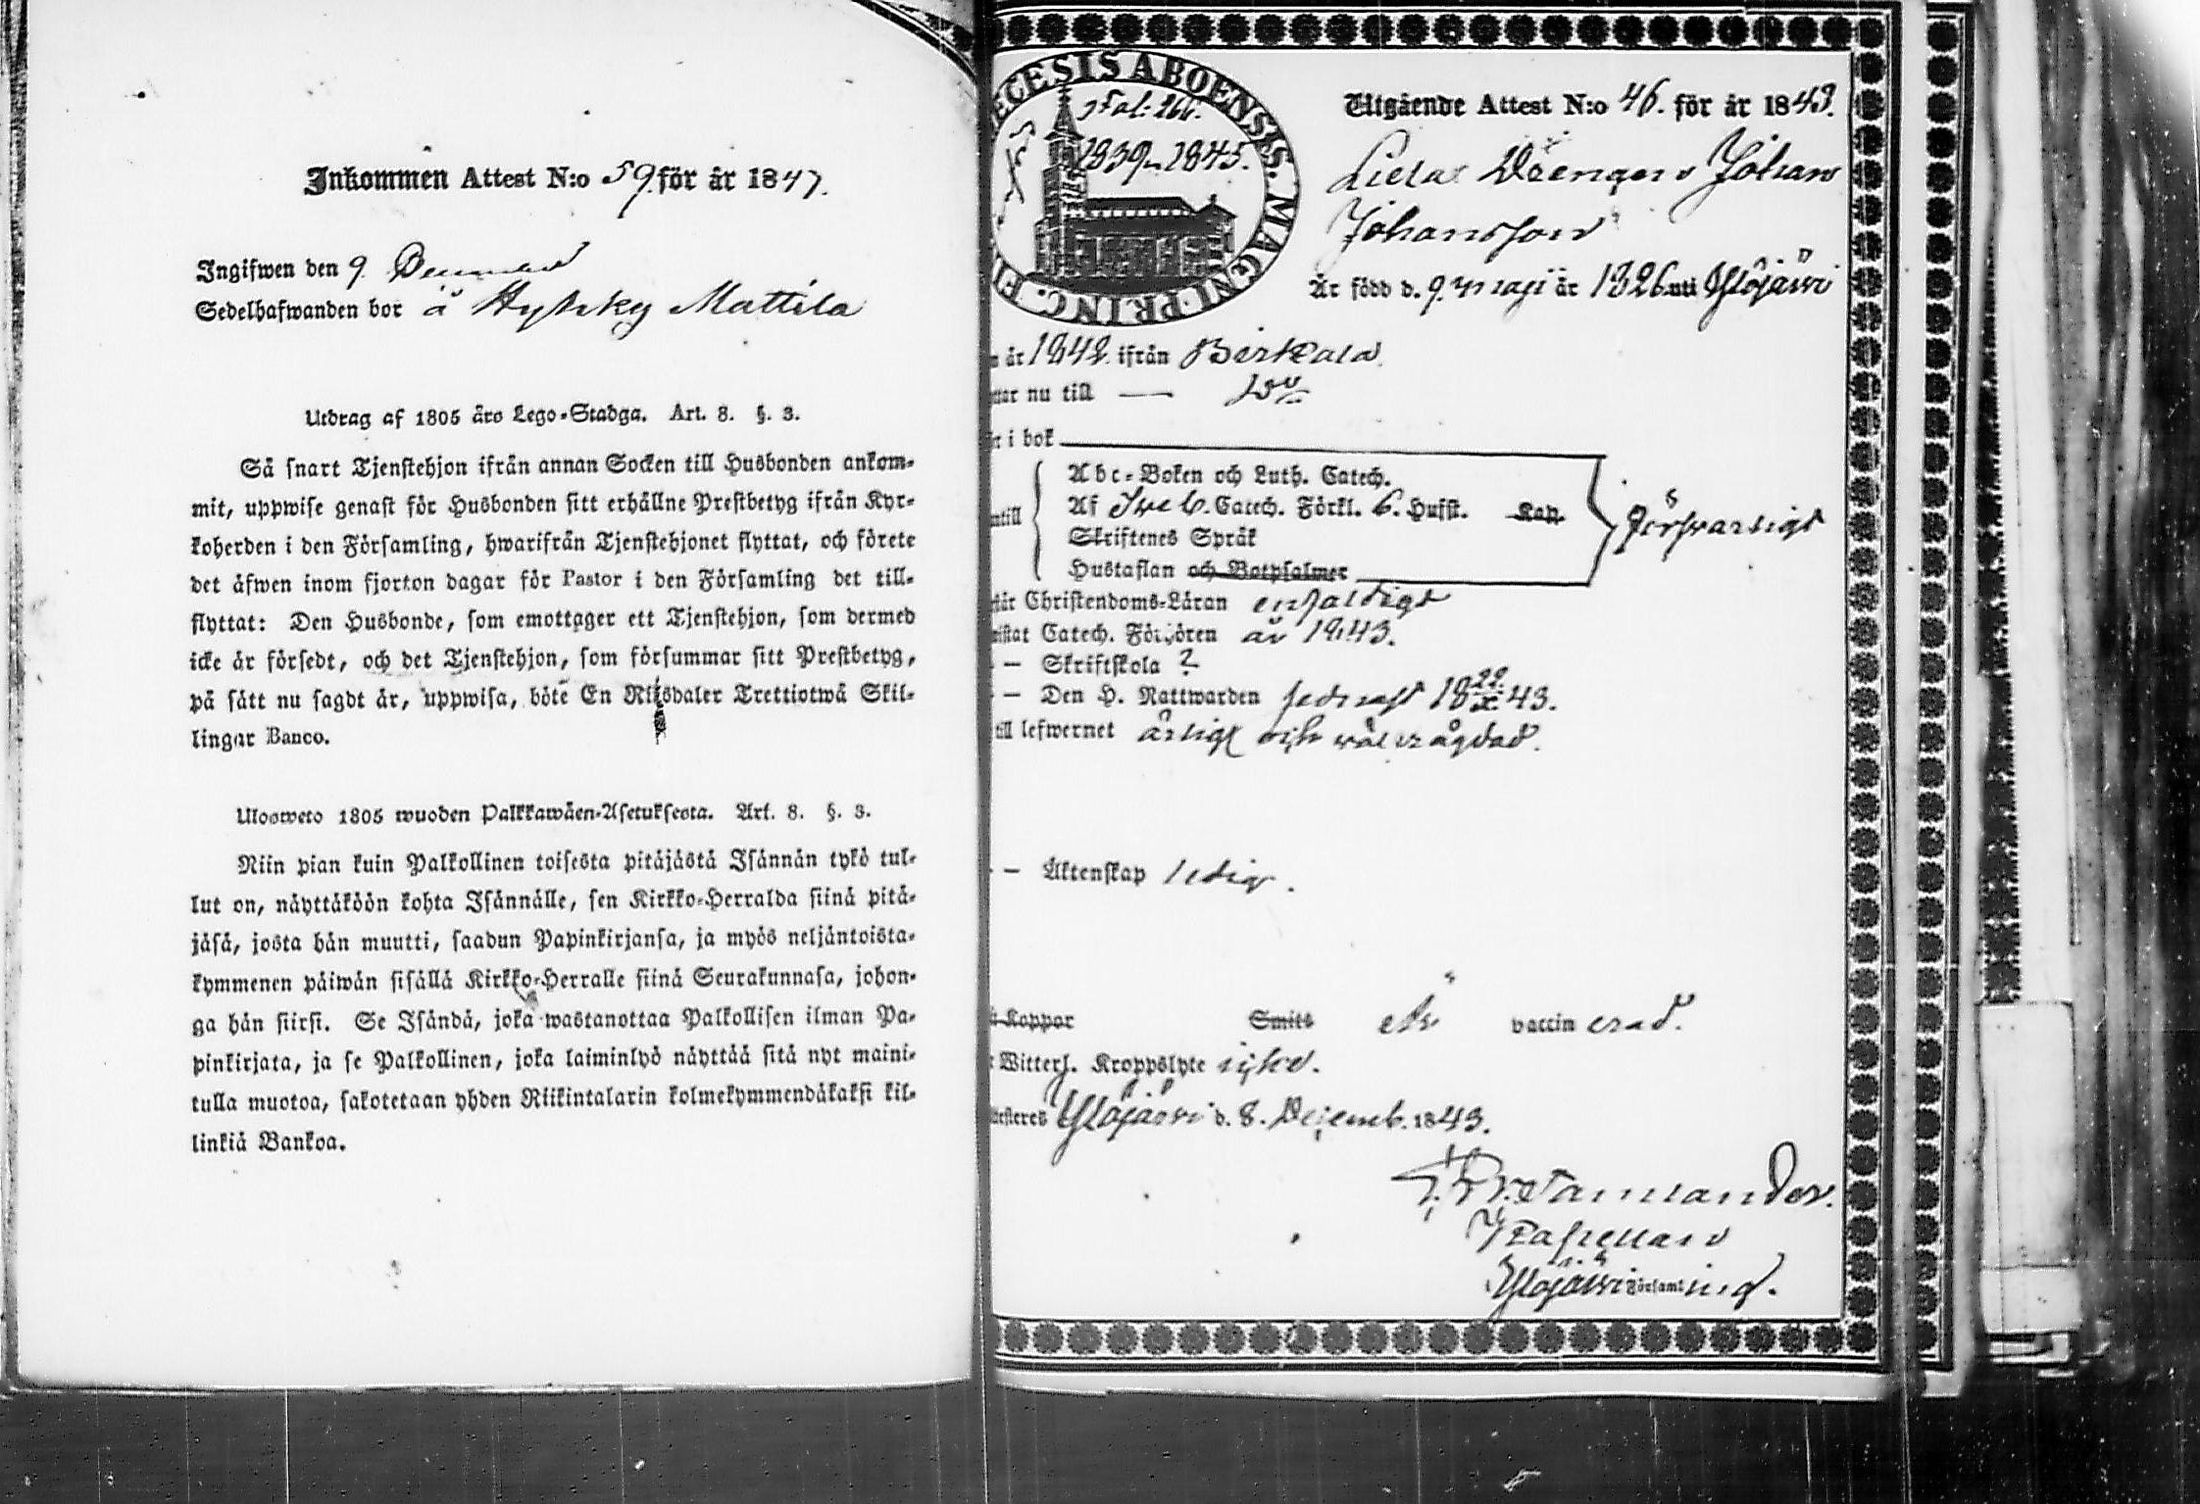 Inkommen Attest N:o 59 för år 1847.
Ingifwen den 9
Sedelhafwanden bor å Hyhky Mattila
Utdrag af 1805 års Lego-Stadga. Art. 8. §. 3.
Så snart Tjenstehjon ifrån annan Socken till Husbonden ankom-
mit, uppwise genast för Husbonden sitt erhållne Prestbetyg ifrån Kyr-
koherden i den Församling, hwarifrån Tjenstehjonet flyttat, och förete
det äfwen inom fjorton dagar för Pastor i den Församling det till-
flyttat: Den Husbonde, som emottager ett Tjenstehjon, som dermed
icke är försedt, och det Tjenstehjon, som försummar sitt Prestbetyg,
på sätt nu sagdt är, uppwisa, böte En Riksdaler Trettiotwå Skil-
lingar Banco.
Ulosweto 1805 wuoden Palkkawäen-Asetuksesta. Art. 8. §. 3.
Niin pian kuin Palkollinen toisesta pitäjästä Isännän tykö tul-
lut on, näyttäköön kohta Isännälle, sen Kirkko-Herralda siinä pitä-
jäsä, josta hän muutti, saadun Papinkirjansa, ja myös neljäntoista-
kymmenen päiwän sisällä Kirkko-Herralle siinä Seurakunnasa, johon-
ga hän siirsi. Se Isändä, joka wastanottaa Palkollisen ilman Pa-
pinkirjata, ja se Palkollinen, joka laiminlyö näyttää sitä nyt maini-
tulla muotoa, sakotetaan yhden Riikintalarin kolmekymmendäkaksi kil-
linkiä Bankoa.
ECESIS ABOENSIS. MAGNI PRINC. FI
Fol: 266.
1839–1845.
Utgående Attest N:o 46. för år 1843.
Drengen Johan
Johansson
Är född d. 9 maji år 1826 uti Ylöjärvi
år 1842 ifrån Birkala
nu till —
i bok
Abc-Boken och Luth. Catech.
Af Sveb. Catech. Förkl. 6. Hufst. Kap.
Skriftenes Språk
Hustaflan och Botpsalmer
försvarligt
Christendoms-Läran enfaldigt
Catech. Förhören år 1843.
— Skriftskola ?
— Den H. Nattwarden sednast 18 22/X 43.
till lefwernet ärligt och väl vågdad.
— Äktenskap ledig.
Koppor Smitt är vaccinerad.
Witterl. Kroppslyte icke.
Ylöjärvi d. 8. Decemb. 1843.
Kapellan
Ylöjärvi Församling.